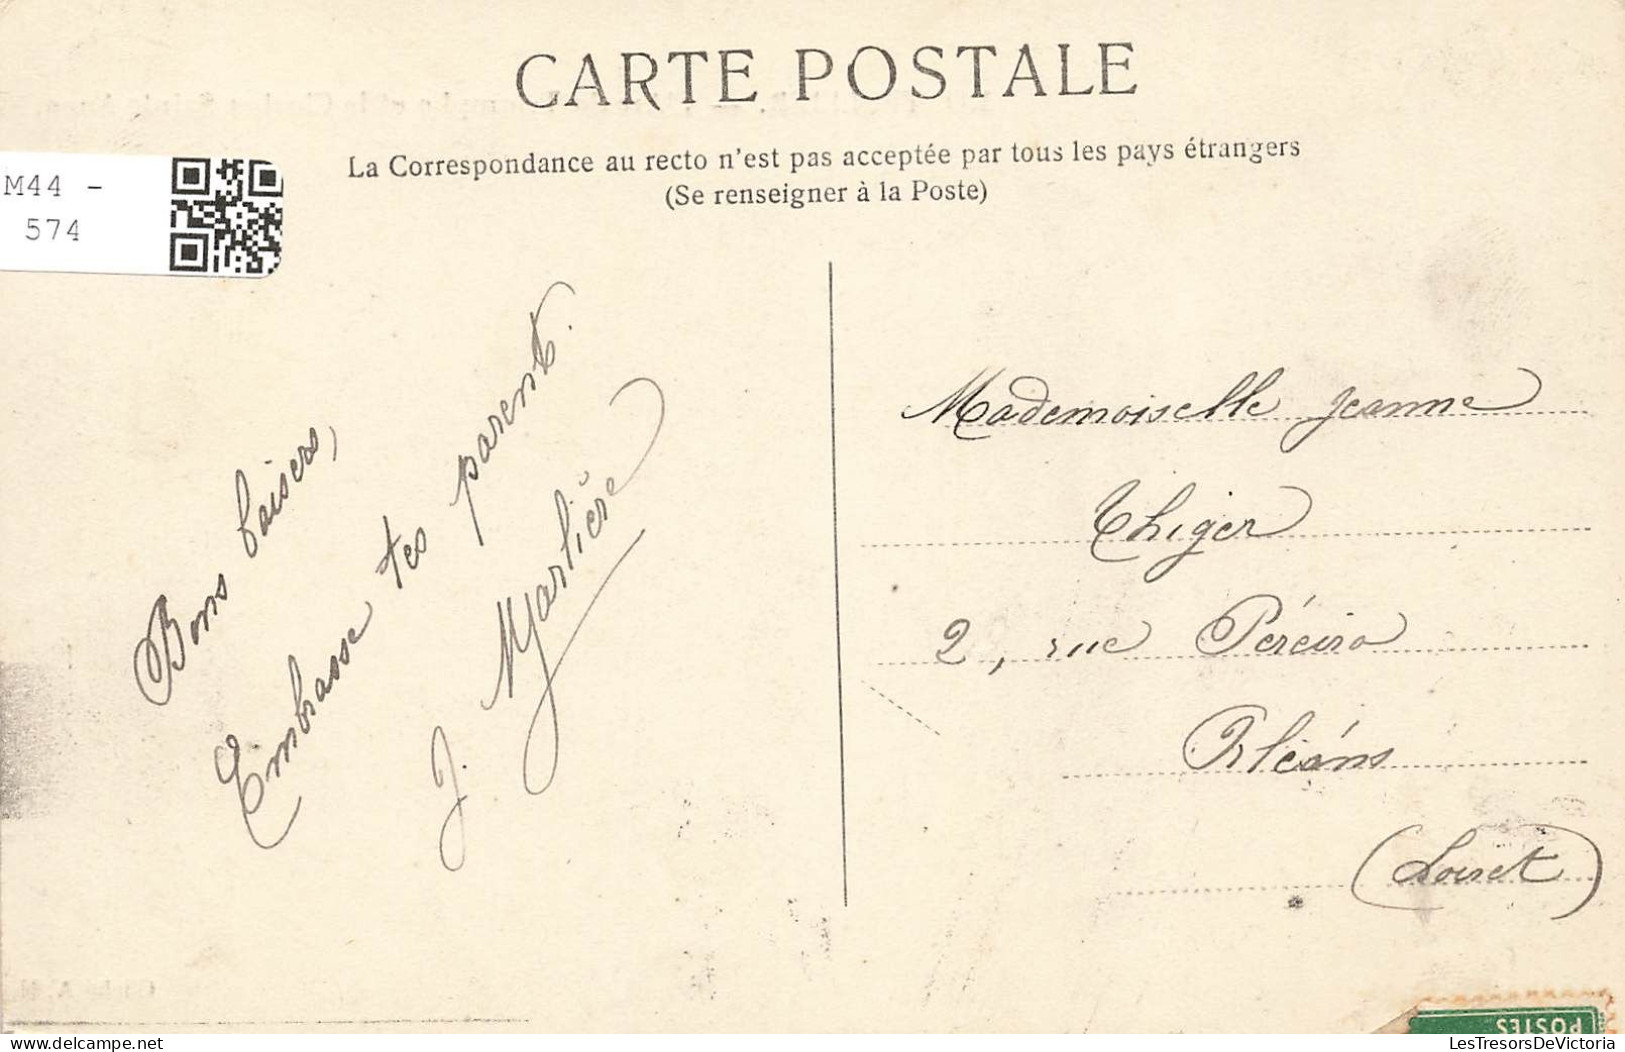 CARTE POSTALE
La Correspondance au recto n'est pas acceptée par tous les pays étrangers
(Se renseigner à la Poste)
M44 -
574
Bons baisers,
Embrasse tes parents.
J. Marlière
Mademoiselle Jeanne
Thiger
2, rue Péreira
Orléans
(Loiret)
POSTES
LesTresorsDeVictoria